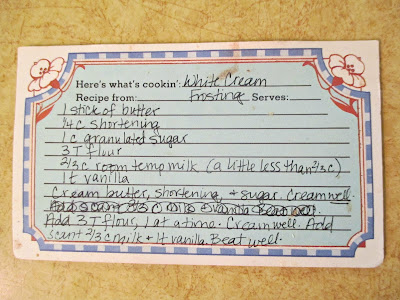 Here's what's cookin': White Cream
Recipe from: Frosting Serves:
1 stick of butter
1/4 c shortening
1 c granulated sugar
3 T flour
2/3 c room temp milk (a little less than 2/3 c)
1 t vanilla
Cream butter, shortening, + sugar. Cream well.
Add scant 2/3 c milk + vanilla. Beat well.
Add 3 T flour, 1 at a time. Cream well. Add
scant 2/3 c milk + 1t vanilla. Beat well.